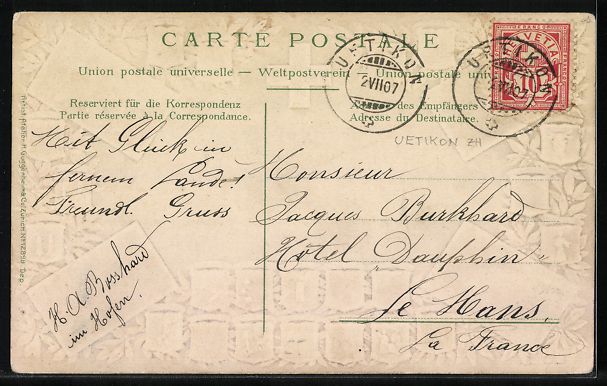 CARTE POSTALE
Union postale universelle — Weltpostverein — Union postale
Reserviert für die Korrespondenz
Partie réservée à la Correspondance.
des Empfängers
Adresse du Destinataire.
HELVETIA
10
UETIKON
2 VII 07
UETIKON
2 VII 07
UETIKON ZH
Mit Glück in
fernem Lande!
Freundl. Gruss
H. A. Bosshard
im Hofen.
Monsieur
Jacques Burkhard
Hôtel Dauphin
Le Mans,
La France